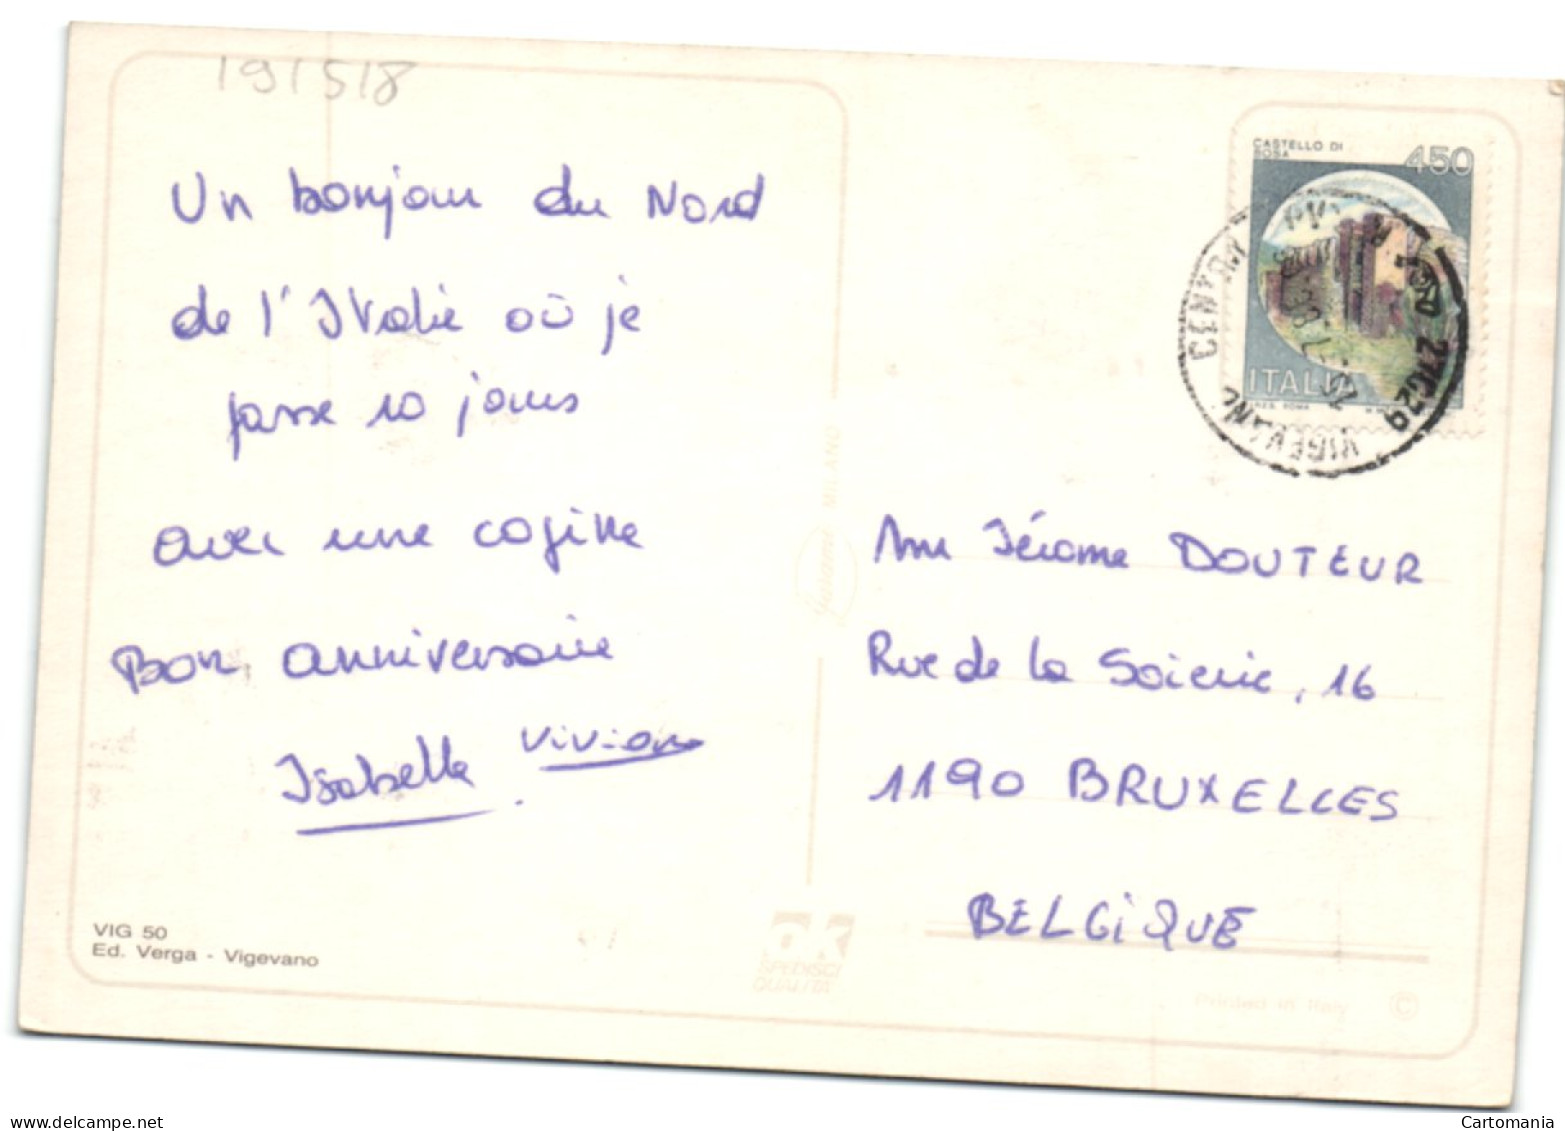 191518
Un bonjour du Nord
de l'Italie où je
passe 10 jours
avec une copine
Bon anniversaire
Isabelle Viviane
VIG 50
Ed. Verga - Vigevano
MILANO
ok
SPEDISCI
QUALITA'
CASTELLO DI
ROSA
450
ITALIA
ROMA
VIGEVANO
27029
Jérôme DOUTEUR
Rue de la Soierie, 16
1190 BRUXELLES
BELGIQUE
Printed in Italy ©
delcampe.net
Cartomania